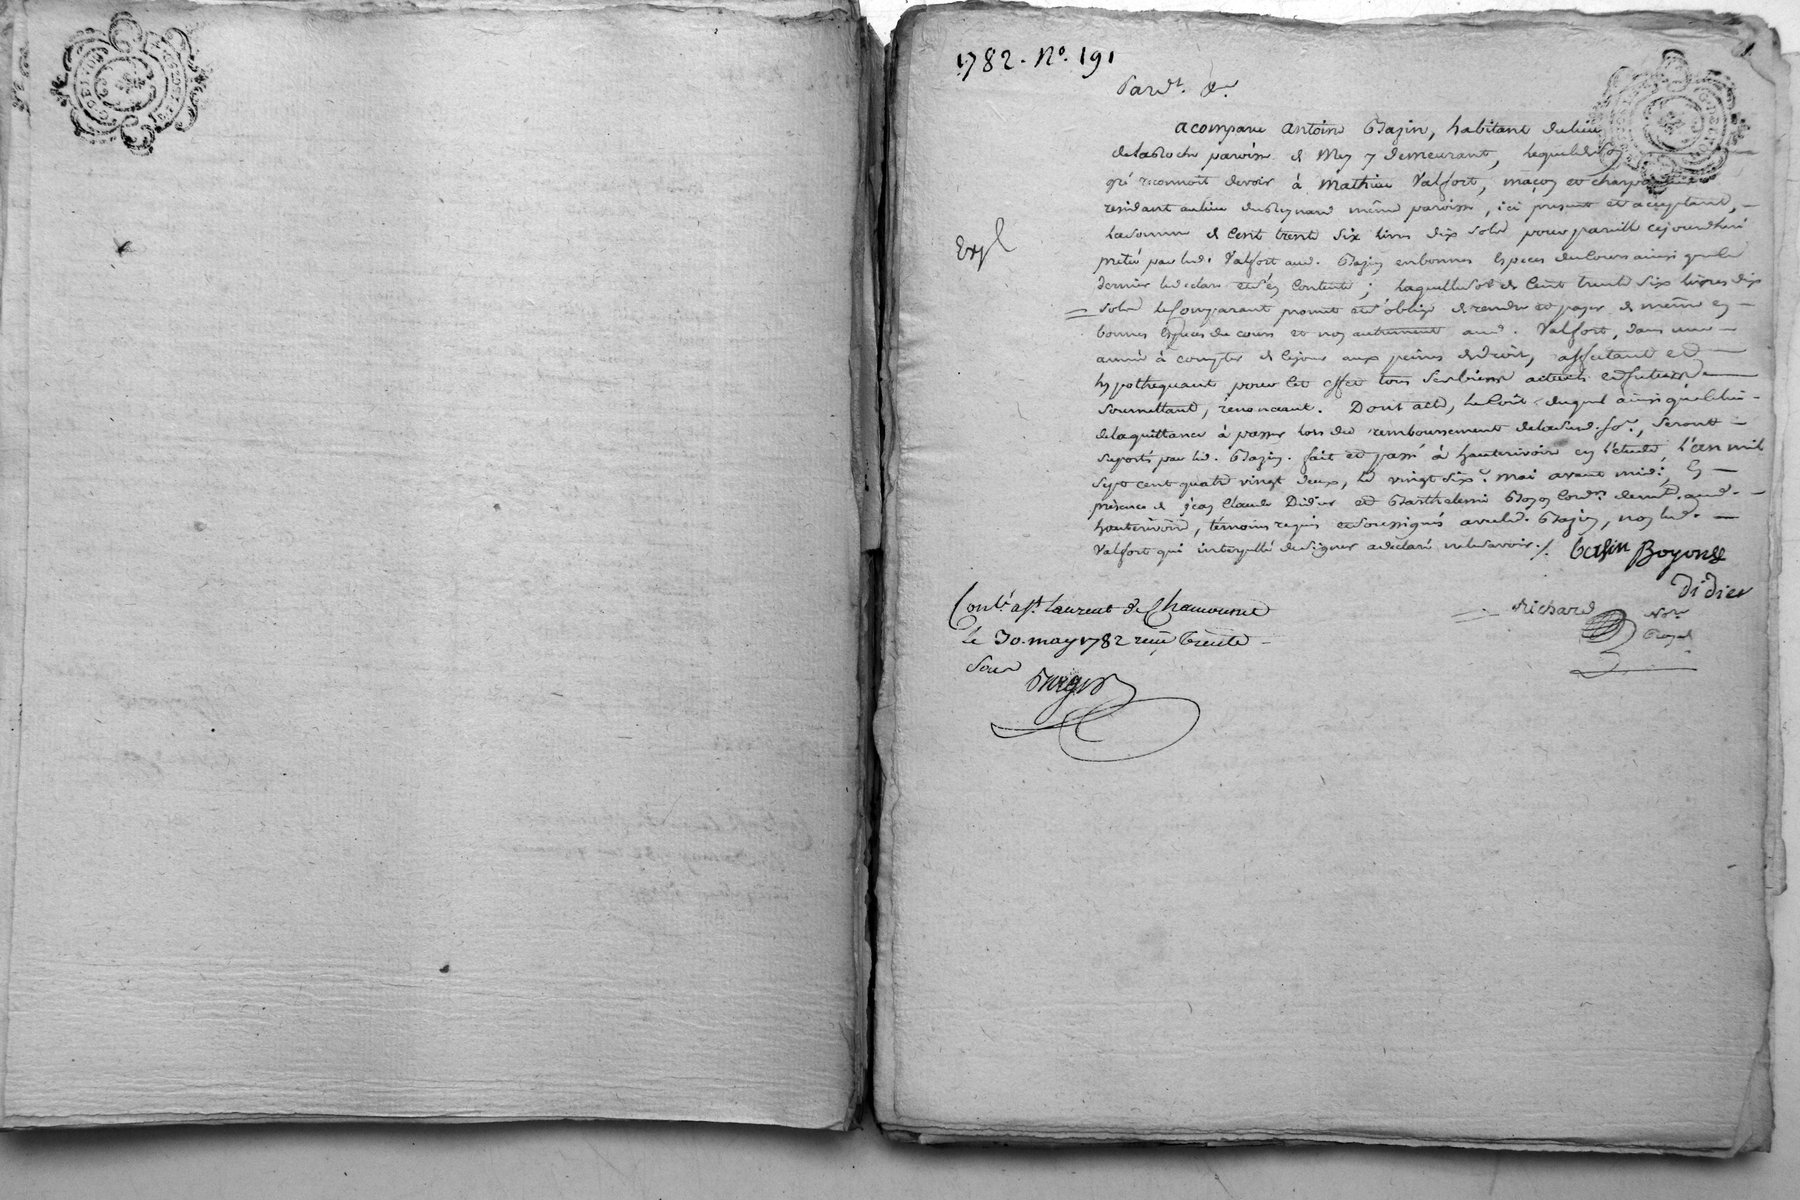 1782. N.o 191
Pard.t &.a
a comparu antoine Bazin, habitant du lieu
de la Roche paroisse de Mey y demeurant, lequel de son
gré reconnoit devoir à Mathieu Valfort, maçon et charpentier
residant au lieu du Reynard même paroisse, ici present et acceptant,
la somme de Cent trente six livres dix sols pour pareille cejourdhui
prêtée par led. Valfort aud. Bazin en bonnes Especes du Cours ainsi que le
dernier le declare et s'en Contente; laquelle so.e de Cent trente six livres dix
Expl
sols le Comparant promet et s'oblige de rendre et payer de même en
bonnes Espéces du cours et non autrement aud. Valfort, dans une
année à compter de ce jour aux peines de droit, affectant et
hypothequant pour cet effet tous ses biens actuels et futurs
soumettant, renonceant. Dont acte, le Coût duquel ainsi que celui
de la quittance à passer lors du remboursement de lad. so.e, seront
suportés par led. Bazin. fait et passé à hauterivoire en l'étude, l'an mil
sept cent quatre vingt deux, le vingt six.e mai avant midi; En
présence de jean Claude Didier et Barthelemi Boyon Cord.r demt. aud.
hauterivoire, témoins requis et soussignés avec led. Bazin, non led.
Valfort qui interpellé de signer a déclaré ne le savoir./. Basin Boyon
Didier
Richard N.re
Royal
Con.lé à S.t Laurent de Chamousset
le 30. may 1782 reçu trente
sous